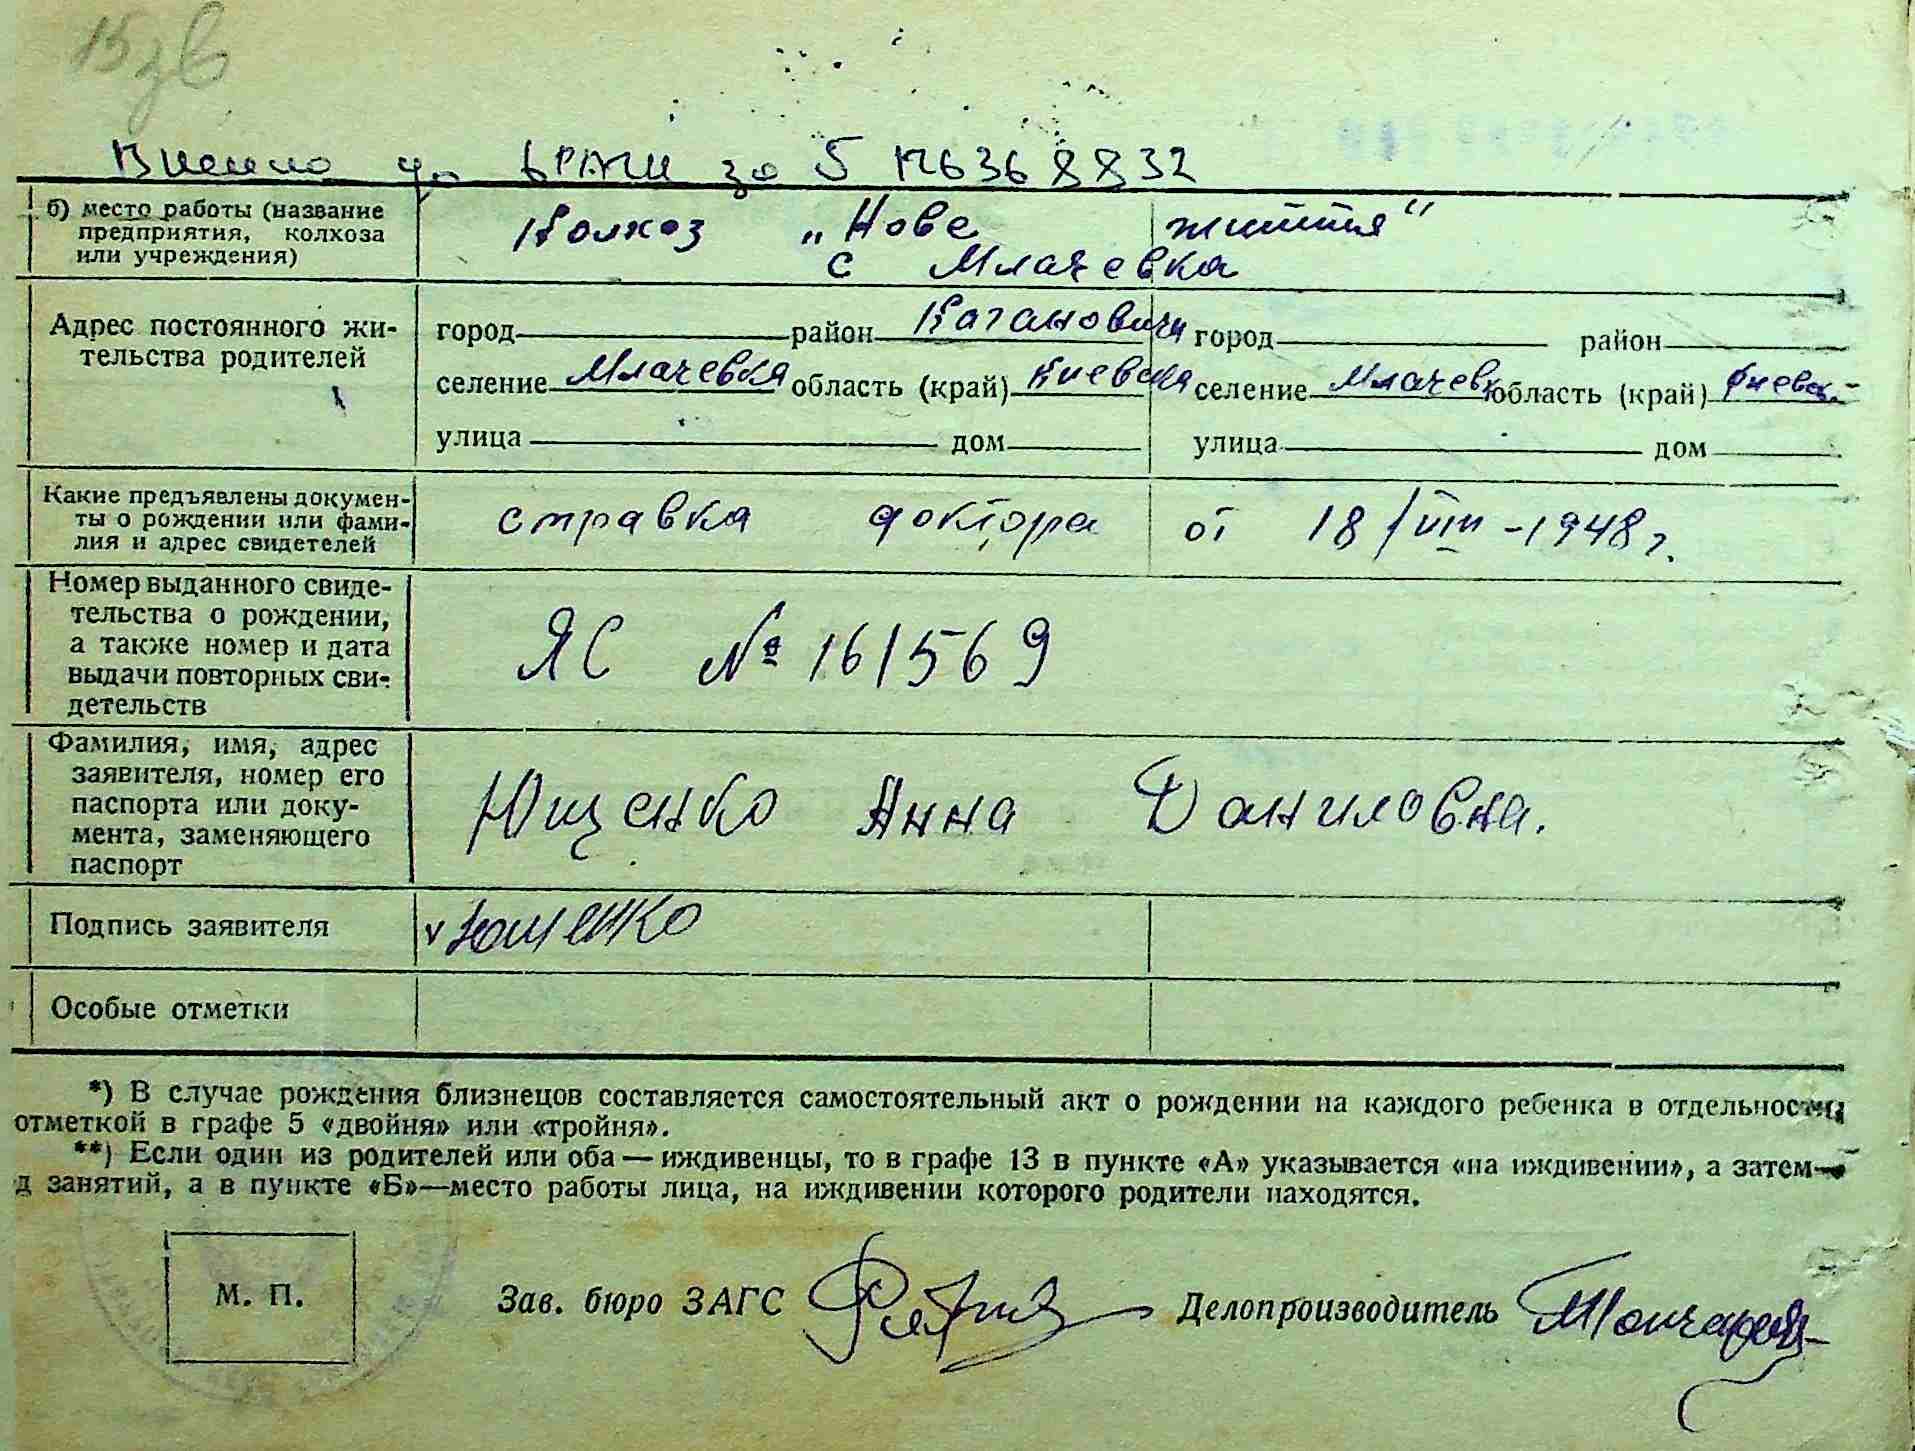 Внесено до ДРАЦС за № 6368832
б) место работы (название
предприятия, колхоза
или учреждения)
Колхоз „Нове життя“
с Млачевка
Адрес постоянного жи-
тельства родителей
город район Каганович город район
селение Млачевка область (край) Киевская селение Млачевк область (край) Киевск.
улица дом улица дом
Какие предъявлены докумен-
ты о рождении или фами-
лия и адрес свидетелей
справка доктора от 18/VIII-1948 г.
Номер выданного свиде-
тельства о рождении,
а также номер и дата
выдачи повторных сви-
детельств
ЯС № 161569
Фамилия, имя, адрес
заявителя, номер его
паспорта или доку-
мента, заменяющего
паспорт
Ющенко Анна Даниловна.
Подпись заявителя
v Ющенко
Особые отметки
*) В случае рождения близнецов составляется самостоятельный акт о рождении на каждого ребенка в отдельности
отметкой в графе 5 «двойня» или «тройня».
**) Если один из родителей или оба — иждивенцы, то в графе 13 в пункте «А» указывается «на иждивении», а затем
д занятий, а в пункте «Б»—место работы лица, на иждивении которого родители находятся.
М. П.
Зав. бюро ЗАГС Делопроизводитель